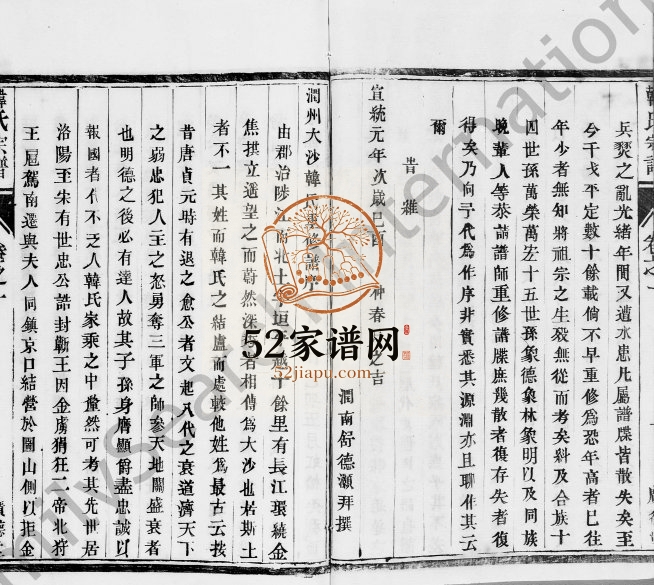 韓氏宗譜
卷之一
兵燹之亂光緒年間又遭水患凡屬譜牒皆散失矣至
今干戈平定數十餘載倘不早重修爲恐年高者巳往
年少者無知將祖宗之生殁無從而考矣料及合族十
四世孫萬榮萬宏十五世孫象德象林象明以及同族
晚輩人等恭請譜師重修譜牒庶幾散者復存失者復
得矣乃向予代爲作序非實悉其源淵亦且聊作其云
爾
旹維
宣統元年次歲巳酉 神春 之吉
潤南舒德灝拜撰
潤州大沙韓氏 修譜序
由郡治陟 北 垣 越十餘里有長江環繞金
焦拱立遥望之而蔚然深 者相傳爲大沙也若斯土
者不一其姓而韓氏之結廬而處較他姓爲最古云按
昔唐貞元時有退之愈公者文起八代之衰道濟天下
之弱忠犯人主之怒勇奪三軍之帥參天地關盛衰者
也明德之後必有達人故其子孫身膺顯爵盡忠誠以
報國者代不乏人韓氏家乘之中儼然可考其先世居
洛陽王宋有世忠公誥封蘄王因金虜猖狂二帝北狩
王扈駕南遷與夫人同鎮京口結營於圌山側以拒金
韓氏宗譜
卷之一
52家谱网
52jiapu.com
FamilySearch International